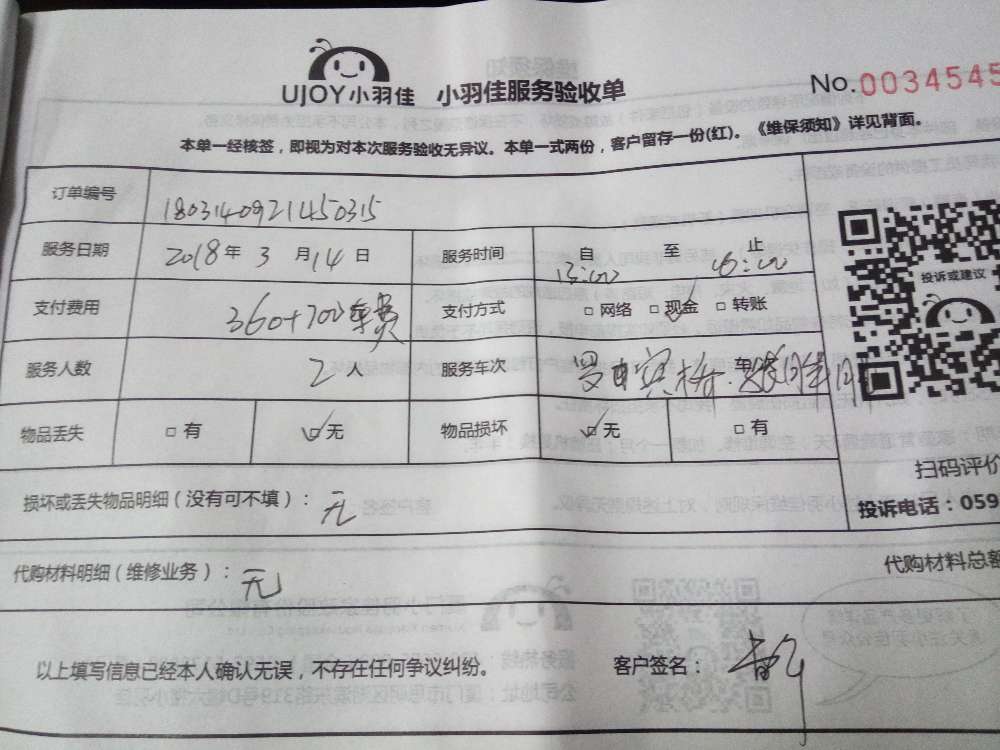 UJOY小羽佳 小羽佳服务验收单 No.0034545
本单一经核签，即视为对本次服务验收无异议。本单一式两份，客户留存一份(红)。《维保须知》详见背面。
订单编号 1803140921450315
服务日期 2018年 3 月 14 日 服务时间 自 13:00 至 16:00 止
支付费用 360+ 支付方式 □ 网络 □ 现金 □ 转账
服务人数 2 人 服务车次 车
物品丢失 □ 有 ☑ 无 物品损坏 ☑ 无 □ 有
投诉或建议
扫码评价
损坏或丢失物品明细（没有可不填）：无
投诉电话：059
代购材料明细（维修业务）：无 代购材料总额
以上填写信息已经本人确认无误，不存在任何争议纠纷。 客户签名：